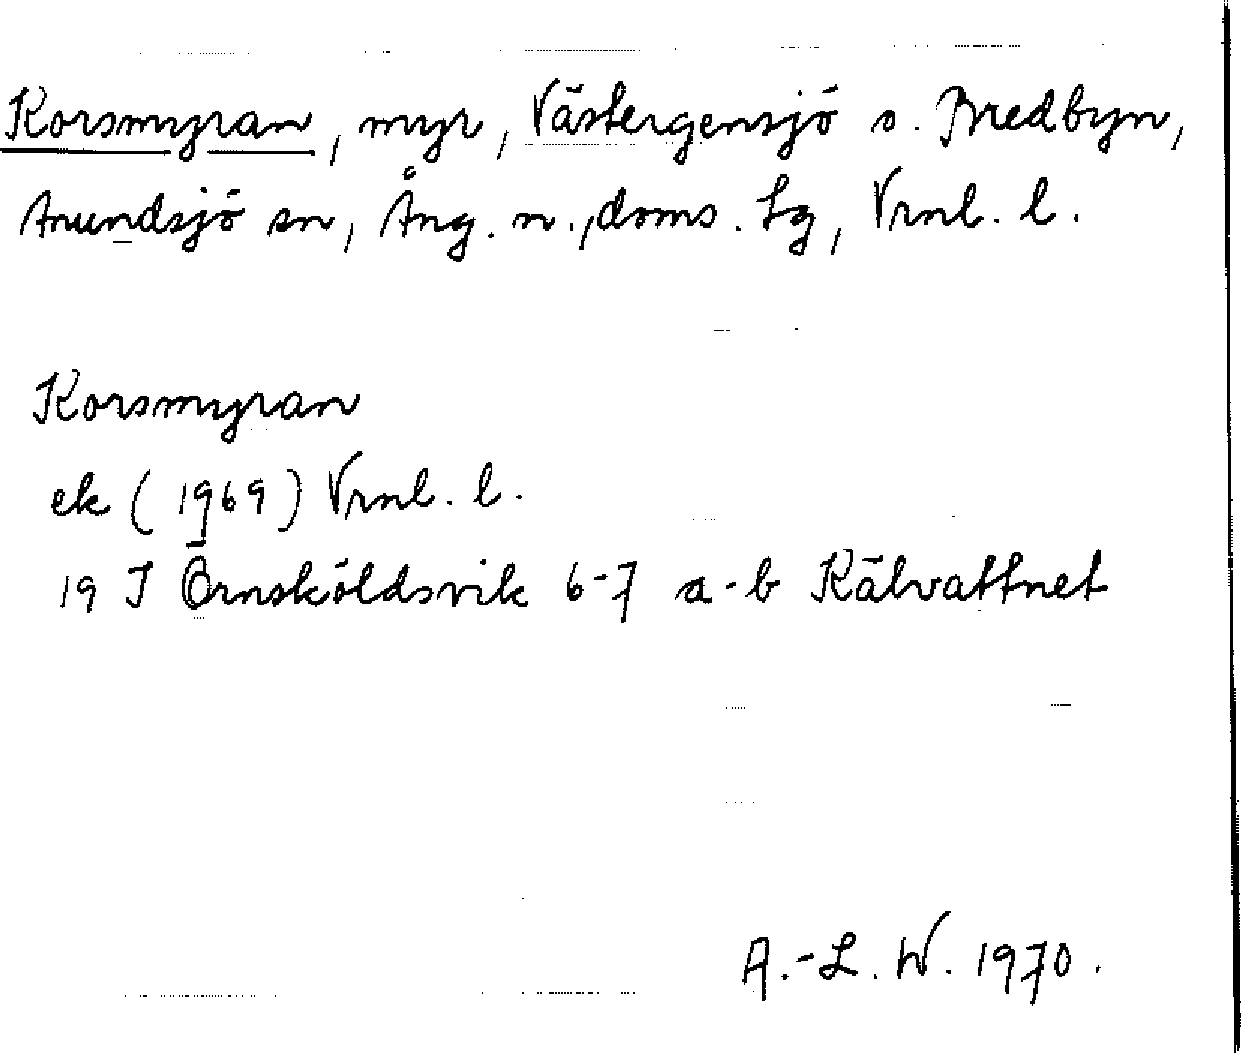 Korsmyran, myr, Västergensjö o. Bredbyn,
Anundsjö sn, Ång. n., doms. Lg, Vrnl. l.
Korsmyran
ek (1969) Vrnl. l.
19 I Örnsköldsvik 6-7 a-b Kälvattnet
A.-L. W. 1970.